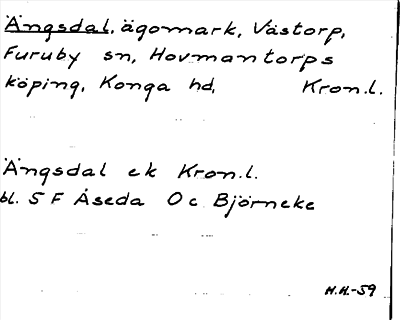 Ängsdal, ägomark, Västorp,
Furuby sn, Hovmantorps
köping, Konga hd, Kron.l.
Ängsdal ek Kron.l.
bl. 5 F Åseda O c Björneke
H.H.-59